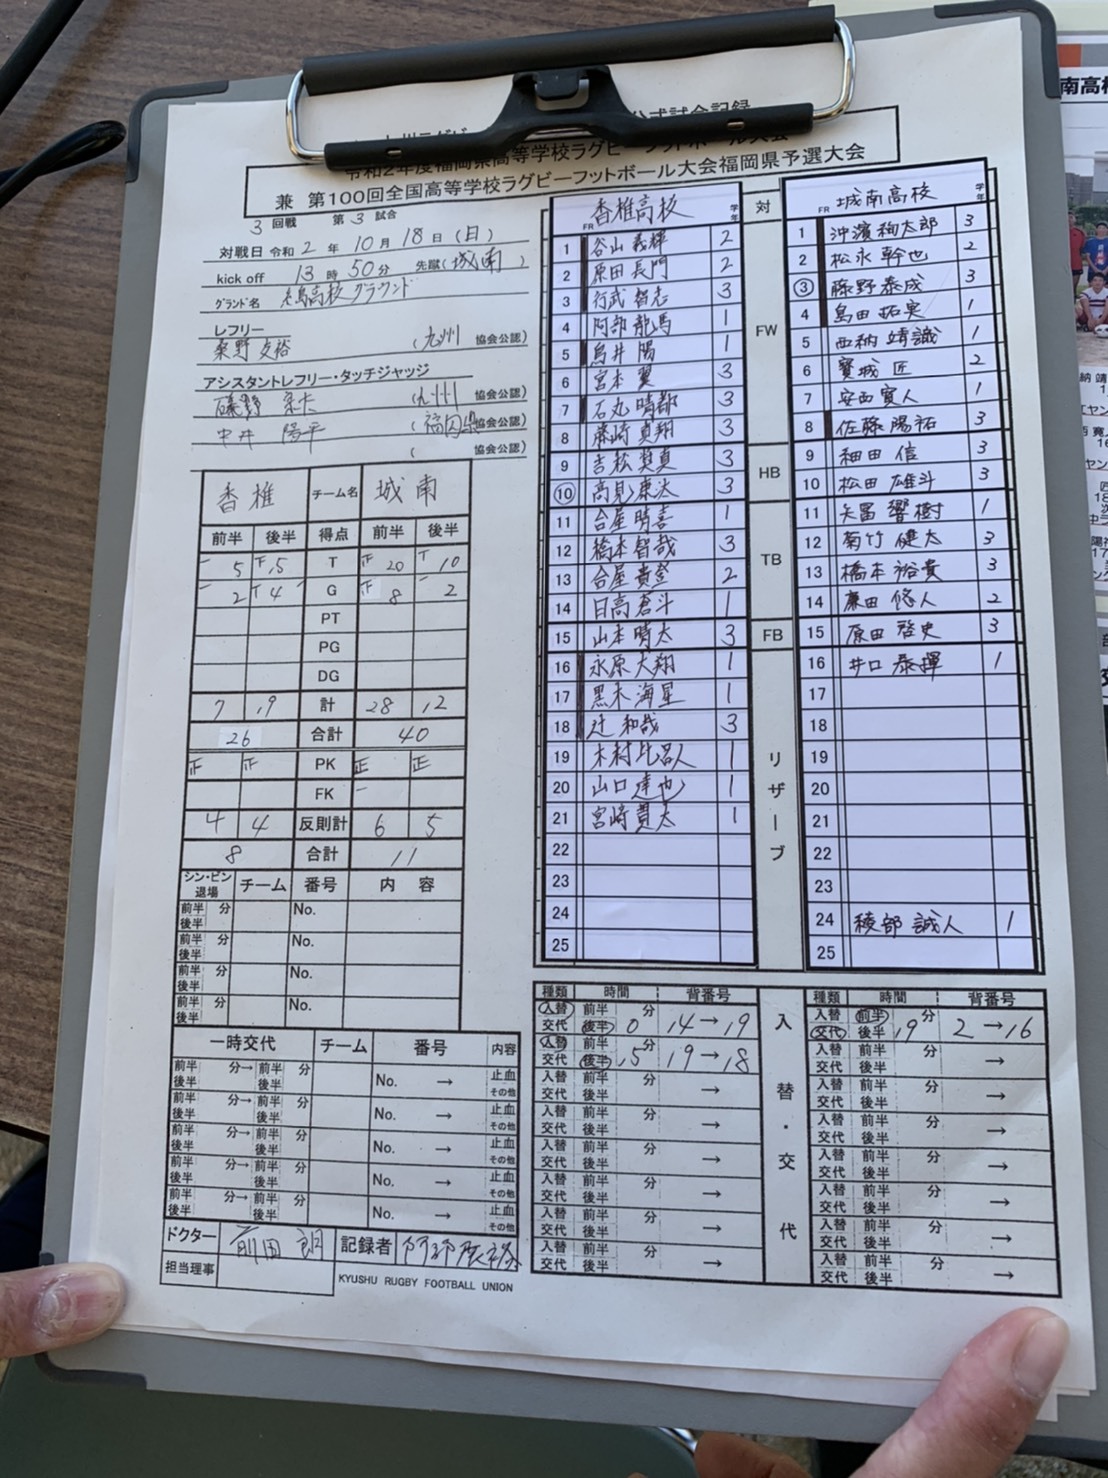 公式試合記録
令和2年度福岡県高等学校ラグビーフットボール大会
兼 第100回全国高等学校ラグビーフットボール大会福岡県予選大会
3 回戦 第 3 試合
対戦日 令和 2 年 10 月 18 日 (日)
kick off 13 時 50 分 先蹴( 城南 )
グランド名 高校グラウンド
レフリー
( 九州 協会公認)
アシスタントレフリー・タッチジャッジ
( 九州 協会公認)
中井 陽平 ( 福岡県 協会公認)
( 協会公認)
香椎 チーム名 城南
前半 後半 得点 前半 後半
5 15 T 20 10
2 4 G 8 2
PT
PG
DG
7 19 計 28 12
26 合計 40
正 正 PK 正 正
FK 一
4 4 反則計 6 5
8 合計 11
シン・ビン 退場 チーム 番号 内容
前半 後半 分 No.
前半 後半 分 No.
前半 後半 分 No.
前半 後半 分 No.
一時交代 チーム 番号 内容
前半 後半 分→ 前半 後半 分 No. → 止血 その他
前半 後半 分→ 前半 後半 分 No. → 止血 その他
前半 後半 分→ 前半 後半 分 No. → 止血 その他
前半 後半 分→ 前半 後半 分 No. → 止血 その他
前半 後半 分→ 前半 後半 分 No. → 止血 その他
ドクター 前田 朗 記録者
担当理事
KYUSHU RUGBY FOOTBALL UNION
FR 香椎高校 学年
1 谷山 義輝 2
2 原田 長門 2
3 行武 智志 3
4 阿部 龍馬 1
5 鳥井 陽 1
6 宮本 翼 3
7 石丸 晴都 3
8 藤崎 真翔 3
9 吉松 奨真 3
10 高見 康汰 3
11 台屋 晴喜 1
12 橋本 智哉 3
13 台屋 貴登 2
14 日高 蒼斗 1
15 山本 晴太 3
16 永原 大翔 1
17 黒木 海星 1
18 辻 和哉 3
19 木村 比呂人 1
20 山口 達也 1
21 宮崎 貫太 1
22
23
24
25
対
FW
HB
TB
FB
リザーブ
FR 城南高校 学年
1 沖濱 絢太郎 3
2 松永 幹也 2
3 藤野 泰成 3
4 島田 拓実 1
5 西納 靖識 1
6 寳城 匠 2
7 安西 寛人 1
8 佐藤 陽祐 3
9 細田 信 3
10 松田 雄斗 3
11 矢冨 響樹 1
12 菊竹 健太 3
13 橋本 裕貴 3
14 廉田 悠人 2
15 原田 啓史 3
16 井口 泰揮 1
17
18
19
20
21
22
23
24 綾部 誠人 1
25
種類 時間 背番号
入替 交代 前半 後半 0 分 14→19
入替 交代 前半 後半 15 分 19→18
入替 交代 前半 後半 分 →
入替 交代 前半 後半 分 →
入替 交代 前半 後半 分 →
入替 交代 前半 後半 分 →
入替 交代 前半 後半 分 →
入替 交代 前半 後半 分 →
入替・交代
種類 時間 背番号
入替 交代 前半 後半 19 分 2→16
入替 交代 前半 後半 分 →
入替 交代 前半 後半 分 →
入替 交代 前半 後半 分 →
入替 交代 前半 後半 分 →
入替 交代 前半 後半 分 →
入替 交代 前半 後半 分 →
入替 交代 前半 後半 分 →
南高校